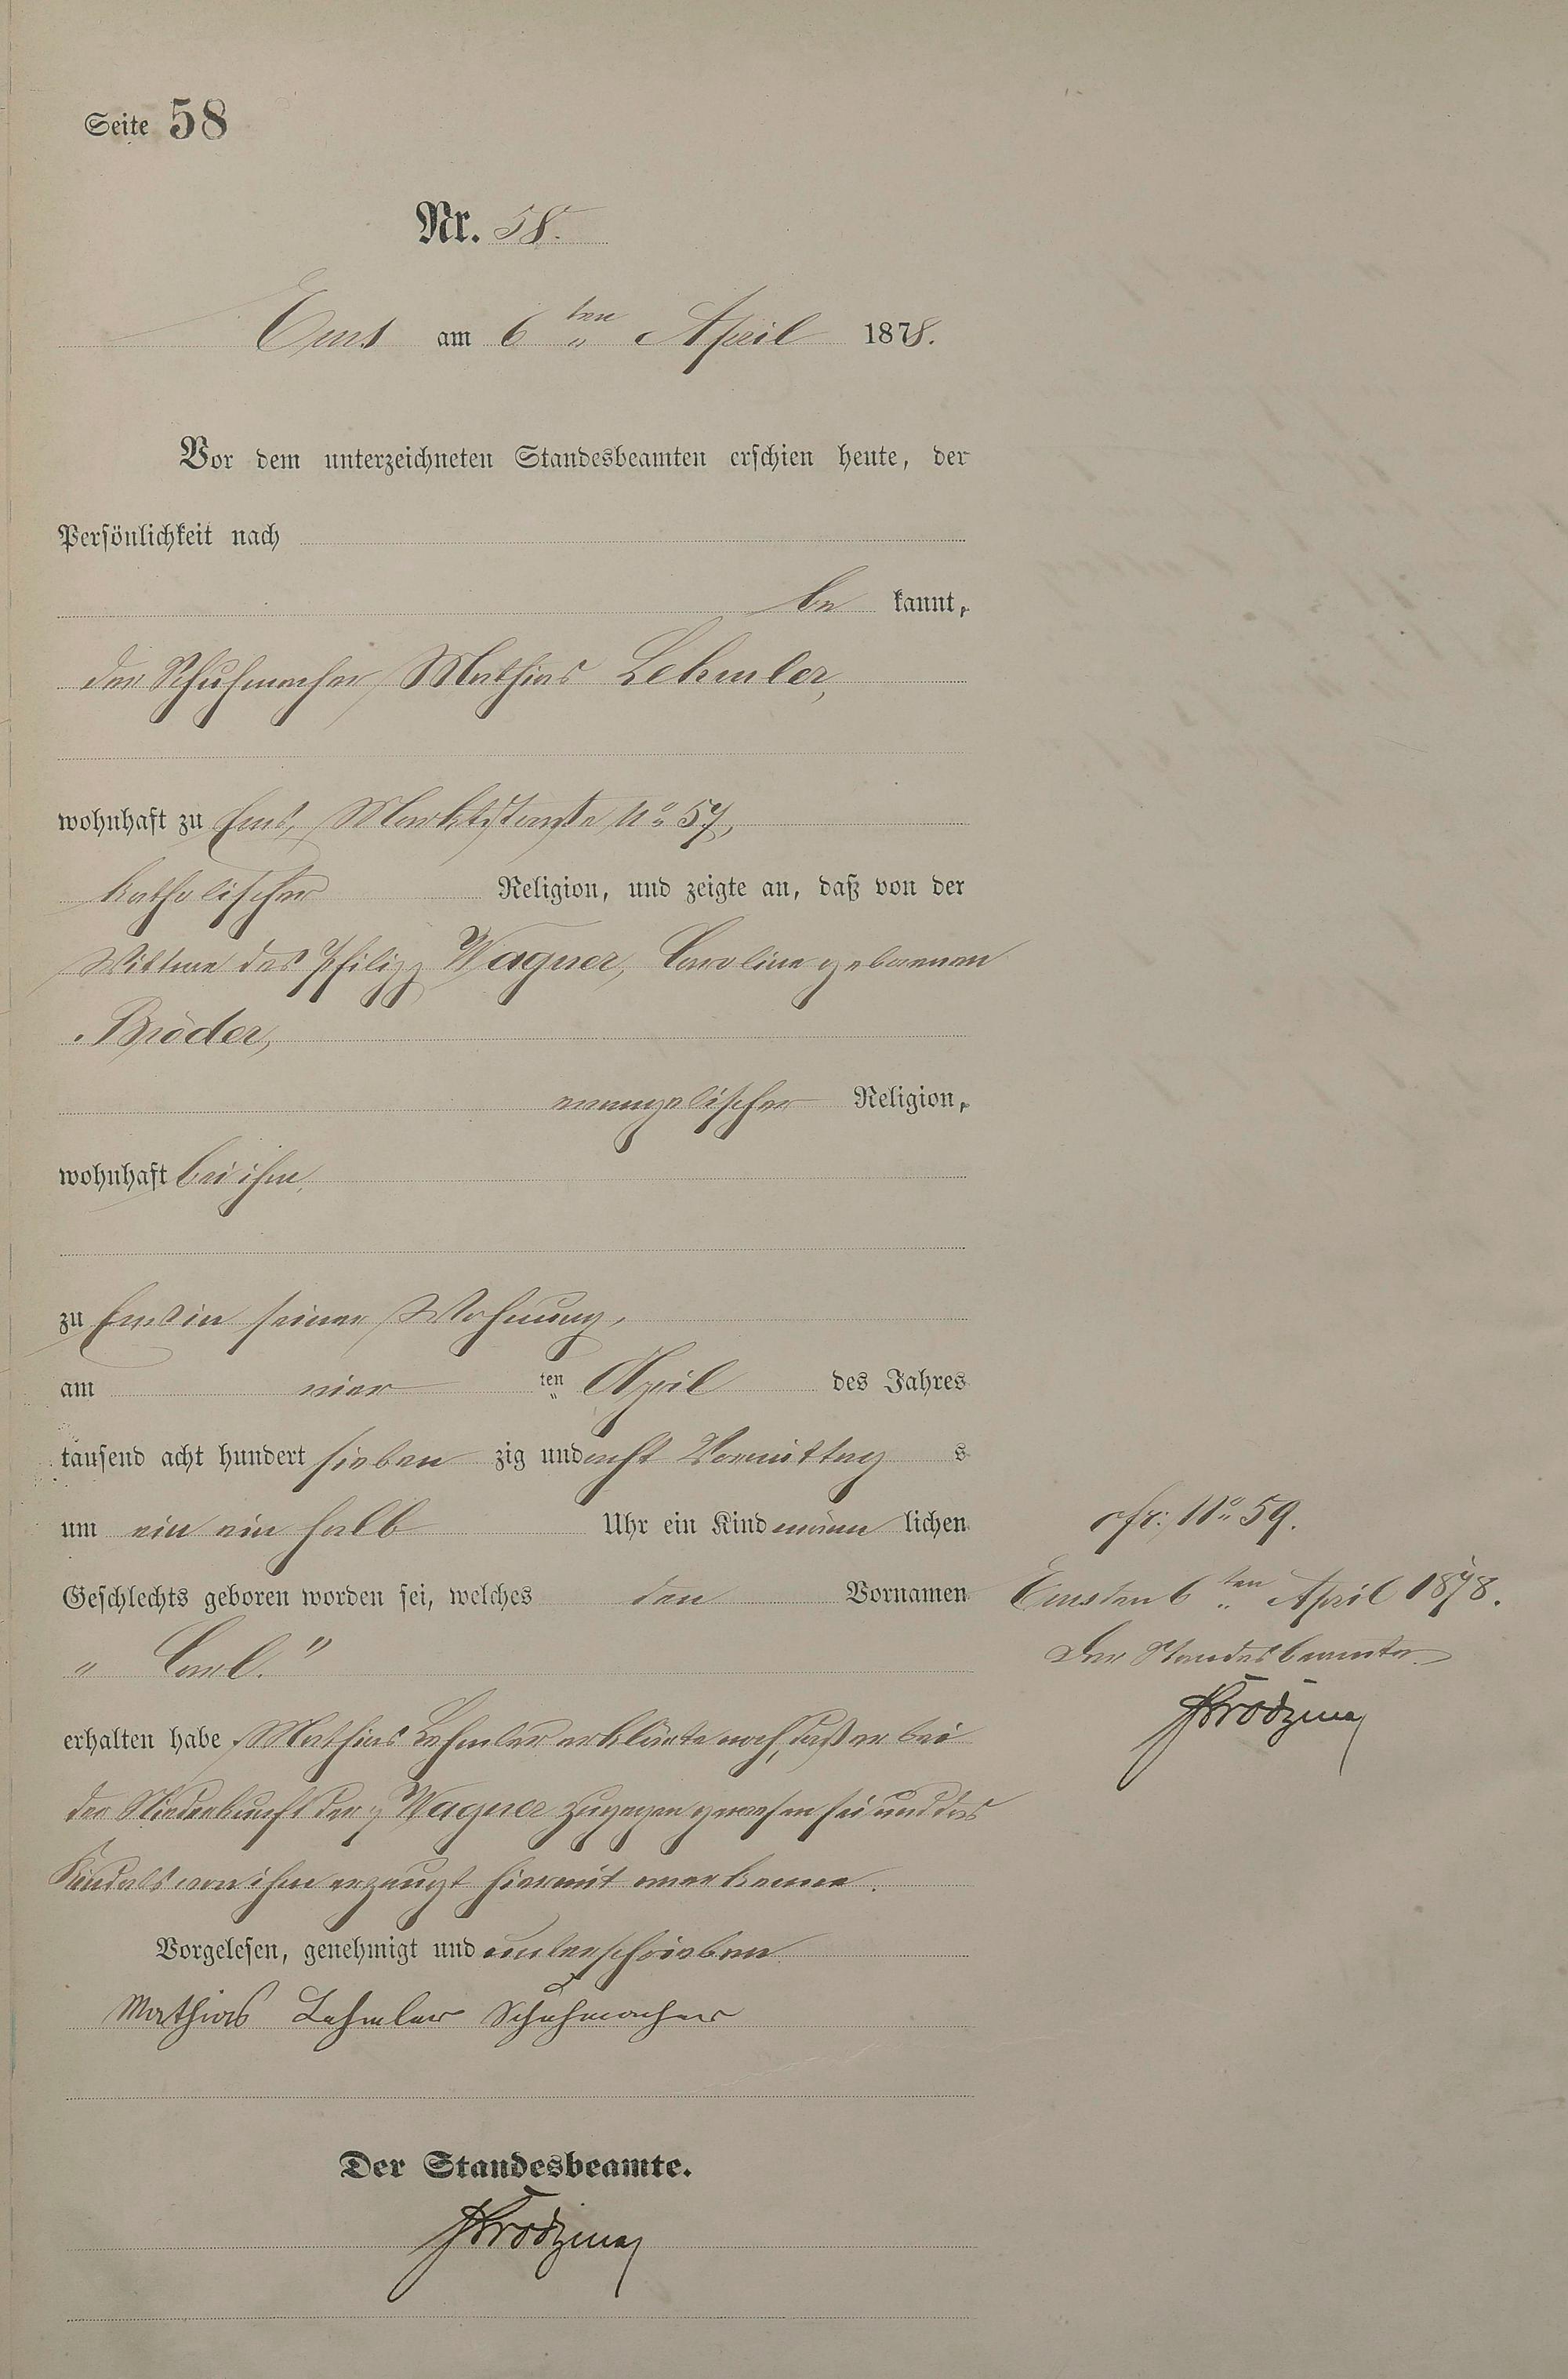 Seite 58
Nr. 58.
Ems am 6ten April 1878.
Vor dem unterzeichneten Standesbeamten erschien heute, der
Persönlichkeit nach
be kannt,
der Schuhmacher Mathias Lehmler,
wohnhaft zu Ems, Marktstraße No 57,
katholischer Religion, und zeigte an, daß von der
Wittwe des Philipp Wagner, Caroline geborenen
Bröder,
evangelischer Religion,
wohnhaft bei ihm,
zu Ems in seiner Wohnung,
am vier ten April des Jahres
tausend acht hundert sieben zig und acht Vormittag s
um ein ein halb Uhr ein Kind männ lichen
Geschlechts geboren worden sei, welches den Vornamen
"Carl."
erhalten habe. Mathias Lehmler erklärte noch, daß er bei
der Niederkunft der p Wagner zugegen gewesen sei und das
Kind als von ihm erzeugt hiermit anerkenne.
Vorgelesen, genehmigt und unterschrieben
Mathias Lehmler Schuhmacher
Der Standesbeamte.
cfr: No 59.
Ems den 6ten April 1878.
Der Standesbeamte